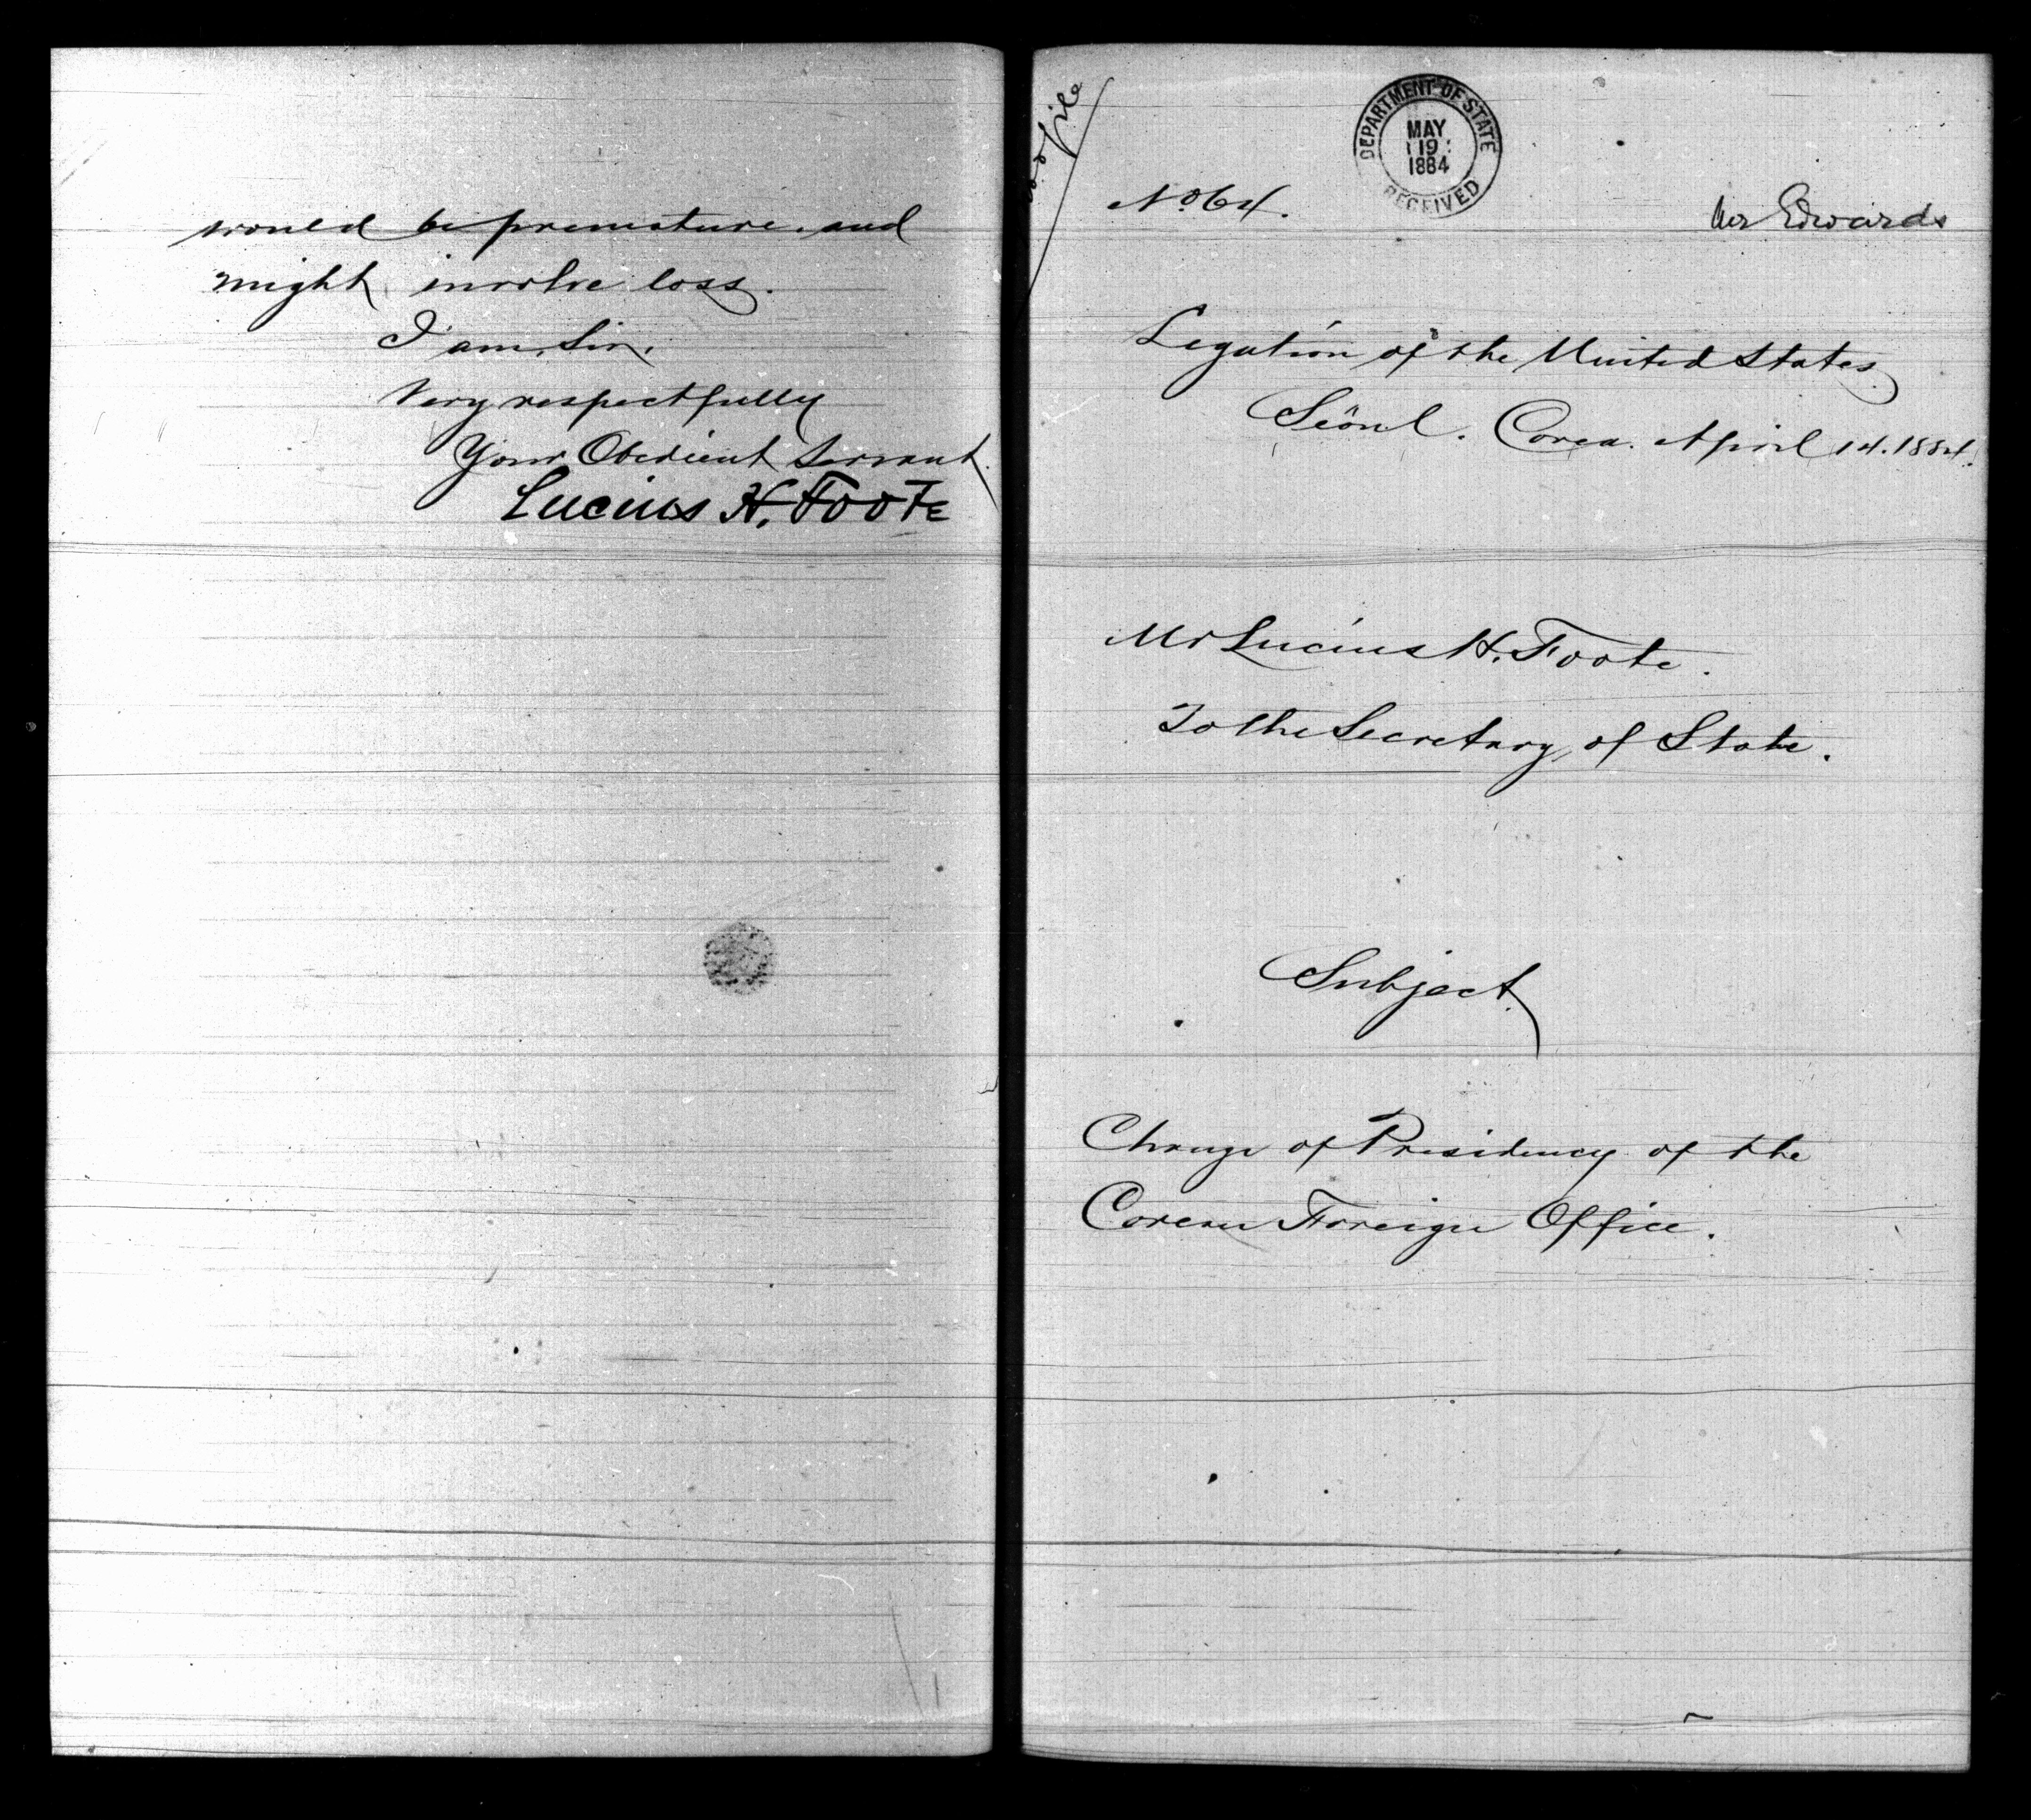 would be premature, and
might involve loss.
I am, Sir,
Very respectfully
Your Obedient Servant.
Lucius H. Foote
file
No 64.
DEPARTMENT OF STATE
MAY
19
1884
RECEIVED
Mr Edwards
Legation of the United States
Séoul. Corea. April 14. 1884.
Mr Lucius H. Foote.
To the Secretary of State.
Subject.
Change of Presidency of the
Corean Foreign Office.